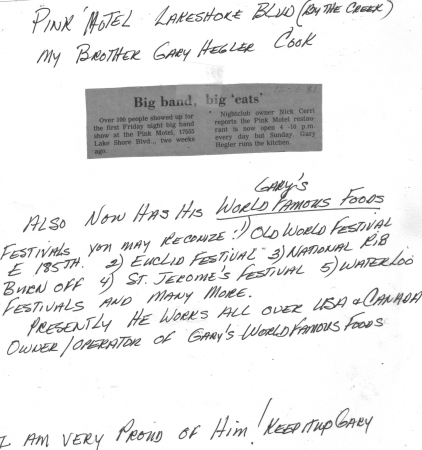 PINK MOTEL LAKESHORE BLVD (BY THE CREEK)
MY BROTHER GARY HEGLER COOK
Big band, big 'eats'
Over 100 people showed up for
the first Friday night big band
show at the Pink Motel, 17555
Lake Shore Blvd., two weeks
ago.
Nightclub owner Nick Cerri
reports the Pink Motel restau-
rant is now open 4-10 p.m.
every day but Sunday. Gary
Hegler runs the kitchen.
GARY'S
ALSO NOW HAS HIS WORLD FAMOUS FOODS
FESTIVALS YOU MAY RECONIZE: 1) OLD WORLD FESTIVAL
E 185TH. 2) EUCLID FESTIVAL 3) NATIONAL RIB
BURN OFF 4) ST. JEROME'S FESTIVAL 5) WATERLOO
FESTIVALS AND MANY MORE.
PRESENTLY HE WORKS ALL OVER USA & CANADA
OWNER/OPERATOR OF GARY'S WORLD FAMOUS FOODS
I AM VERY PROUD OF HIM! KEEP IT UP GARY